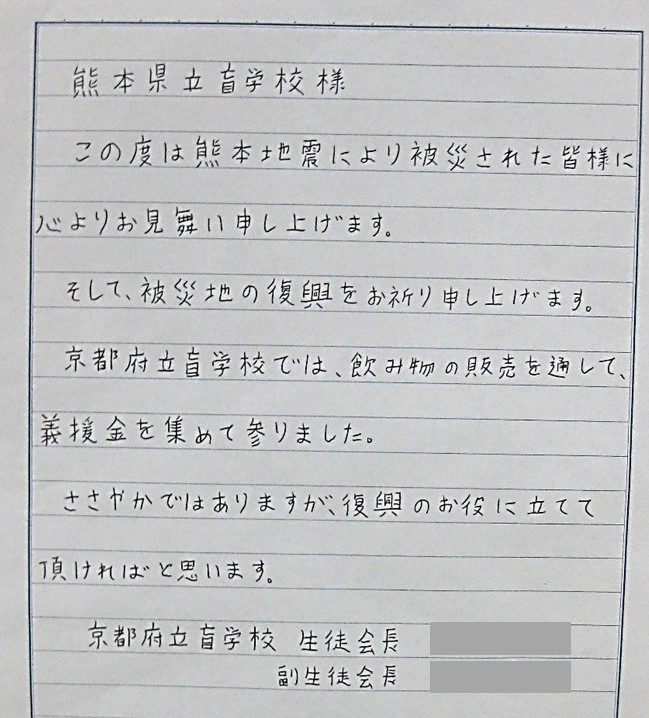 熊本県立盲学校様
この度は熊本地震により被災された皆様に
心よりお見舞い申し上げます。
そして、被災地の復興をお祈り申し上げます。
京都府立盲学校では、飲み物の販売を通して、
義援金を集めて参りました。
ささやかではありますが、復興のお役に立てて
頂ければと思います。
京都府立盲学校 生徒会長
副生徒会長